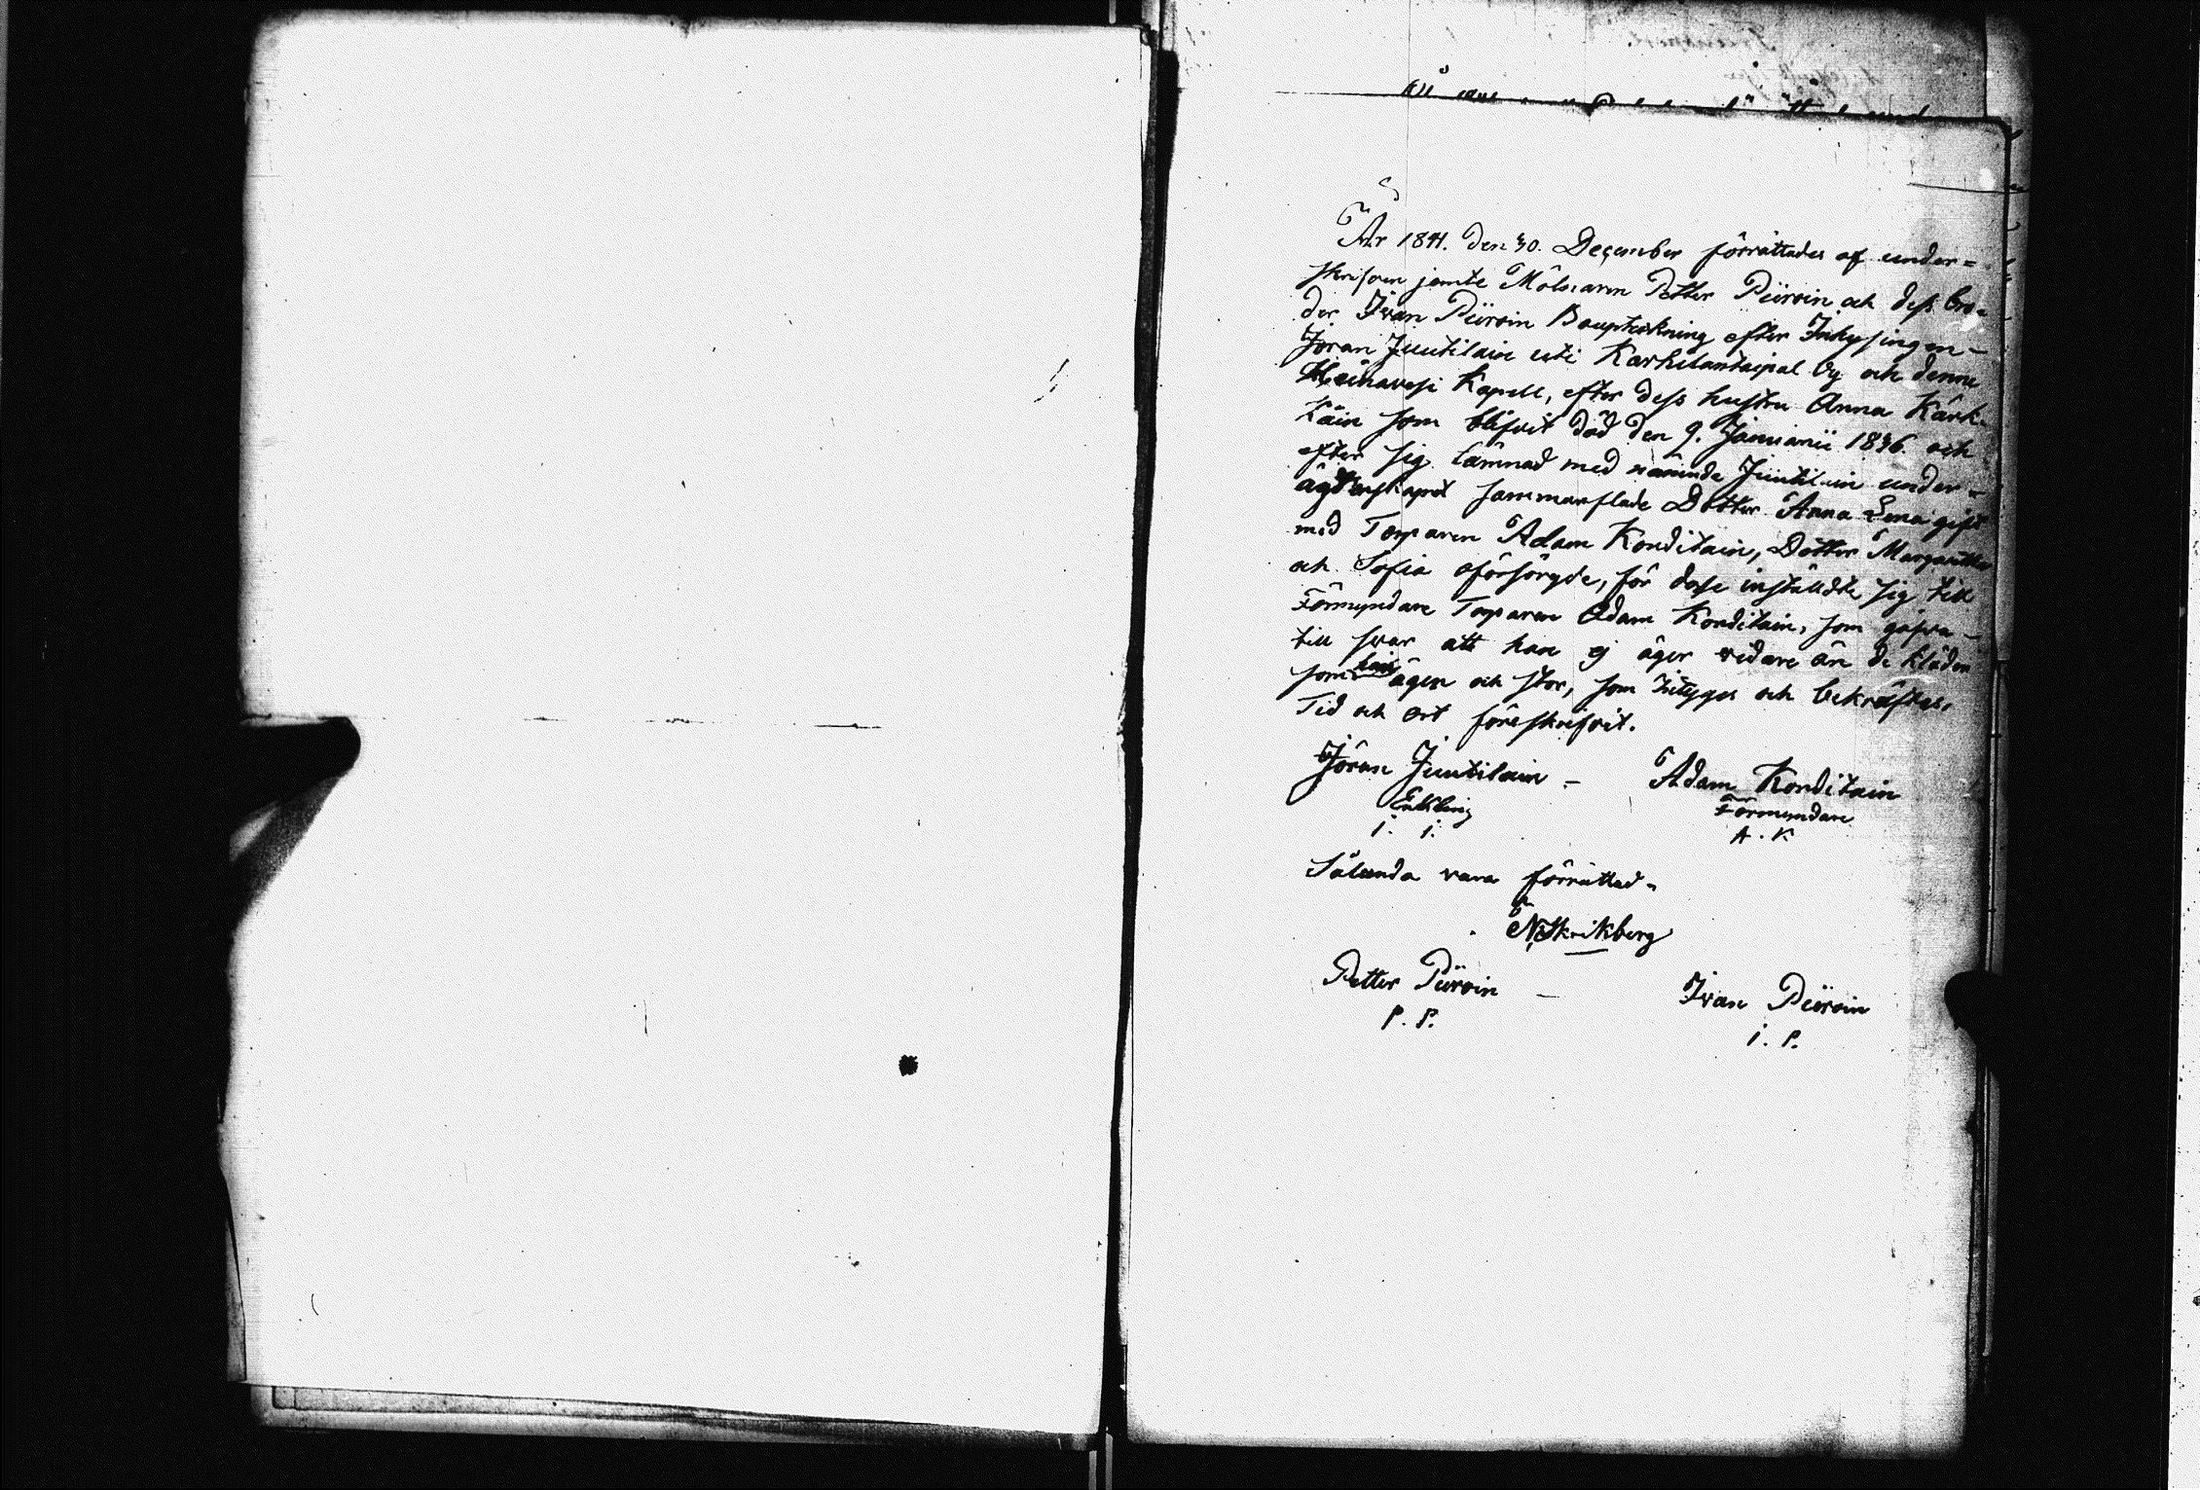 År 1841. den 30. December förrättades af under=
skrifven jemte Mölnaren Petter Piiroin och dess bro=
der Ivan Piiroin Bouptekning efter Inhysingen
Jöran Juutilain uti Karhilantaipal By och denne
Heinavesi Kapell, efter dess hustru Anna Kärk
käin som blifvit död den 9. Januarii 1836. och
efter sig lämnad med nämnde Juutilain under
ägtenskapet sammanflade Dotter Anna Lena gift
med Torparen Adam Konditain, Dotter Margaretha
och Sofia oförsörgde, för dese instäldte sig till
Förmyndare Torparen Adam Konditain, som gafva
till svar att han ej äger vidare än de kläder
som han ägen och stor, som Intyges och bekräftas.
Tid och ort föreskrifvit.
Jöran Juutilain – Adam Konditain
Enkling Förmyndare
i. i. A. K
Sålunda vara förrättad.
Petter Piiroin – Ivan Piiroin
P. P. i. P.